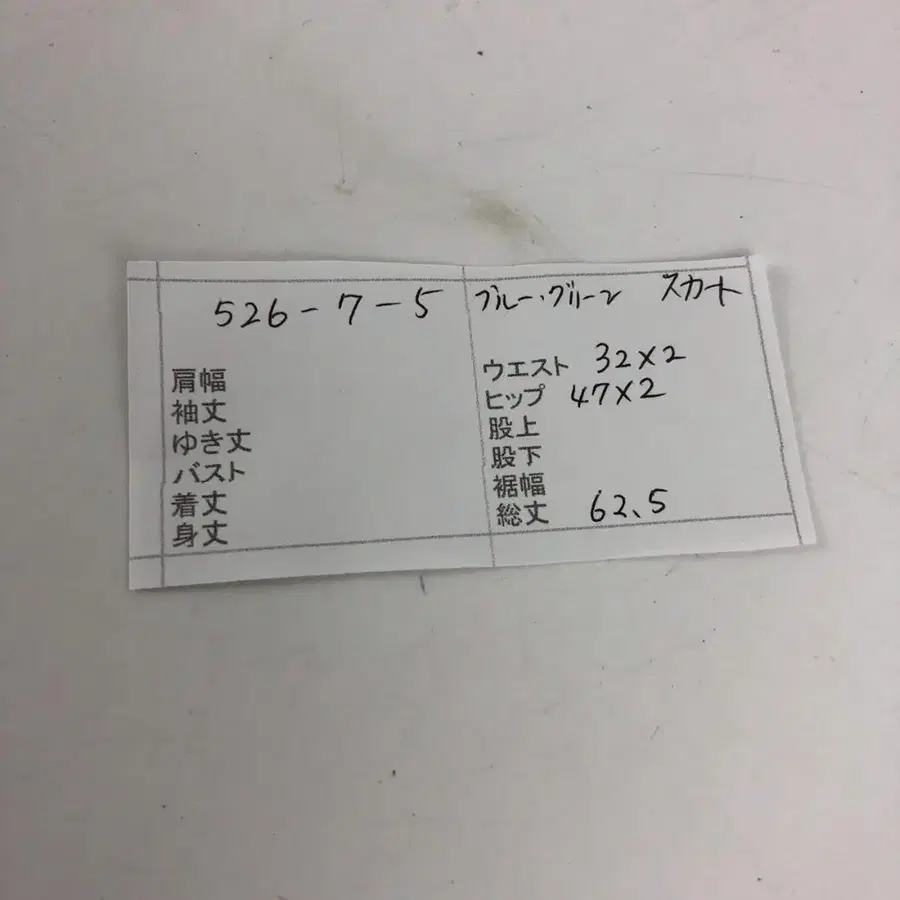 526-7-5 ブルー・グリーン スカート
肩幅
袖丈
ゆき丈
バスト
着丈
身丈
ウエスト 32×2
ヒップ 47×2
股上
股下
裾幅
総丈 62.5